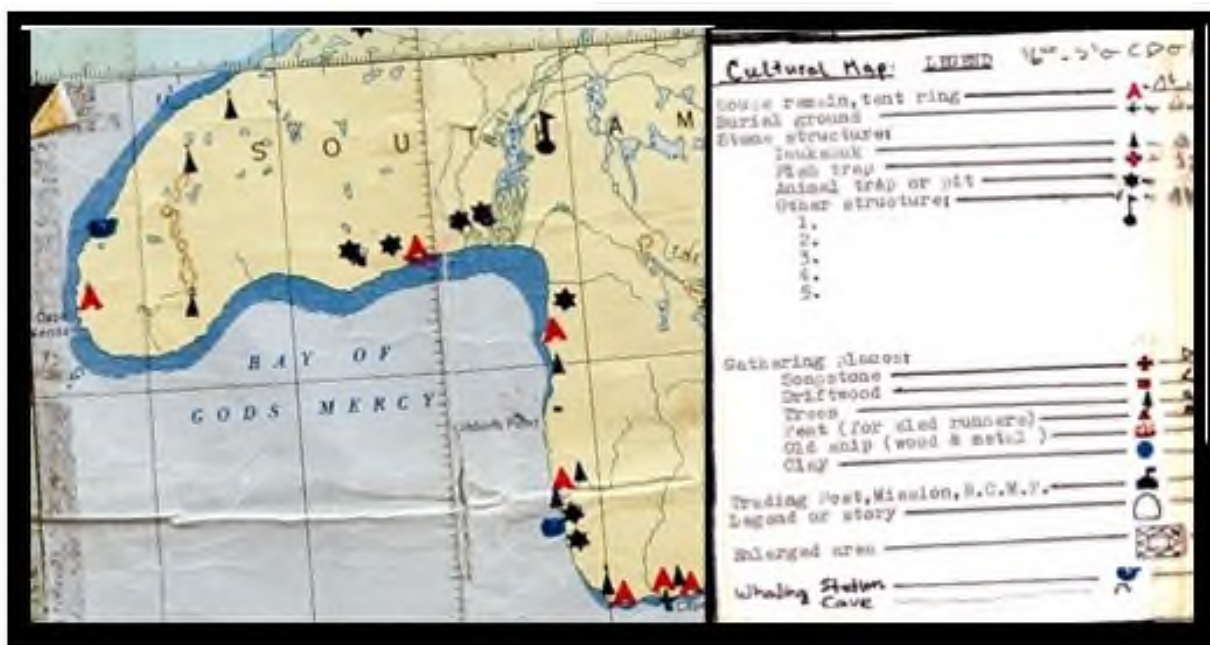 SOUTHAM
BAY OF
GODS MERCY
Cultural Map: LEGEND
House remain, tent ring
Burial ground
Stone structure:
Inukshuk
Fish trap
Animal trap or pit
Other structure:
1.
2.
3.
4.
5.
Gathering places:
Soapstone
Driftwood
Trees
Peat (for sled runners)
Old ship (wood & metal)
Clay
Trading Post, Mission, R.C.M.P.
Legend or story
Enlarged area
Whaling Station
Cave